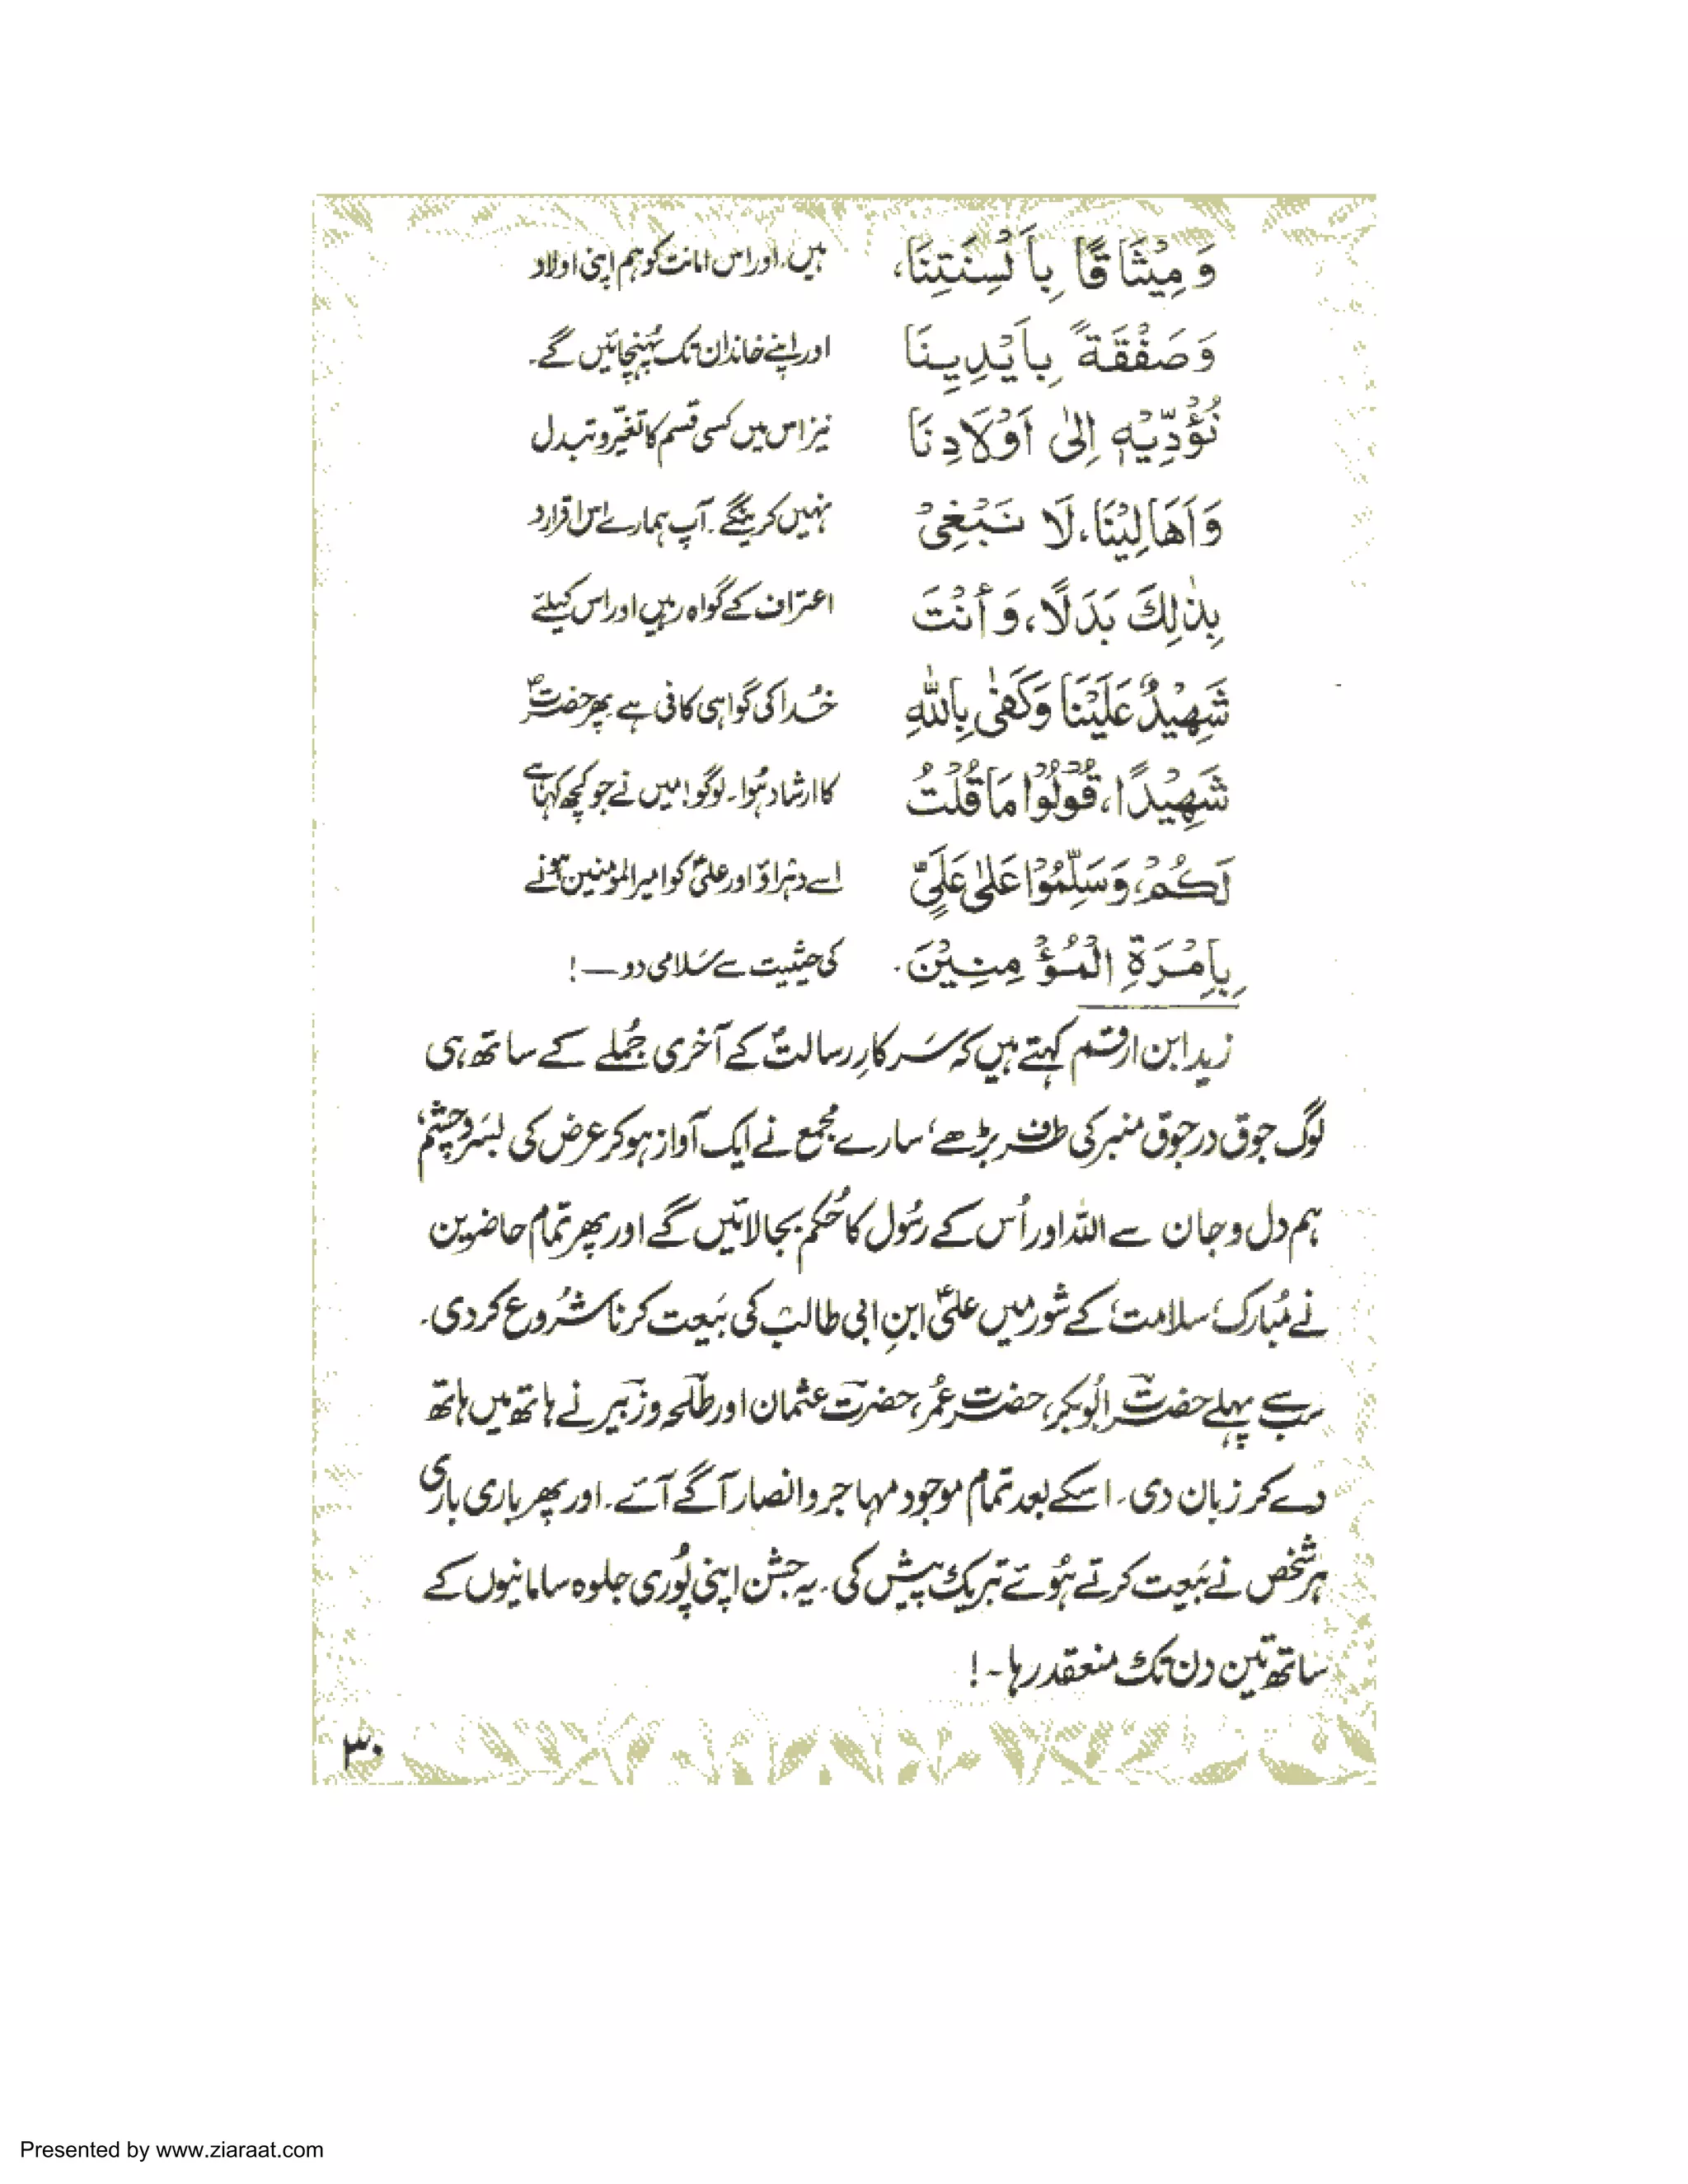 وَمِيْثَاقًا بِاَلْسِنَتِنَا،
وَصَفْقَةً بِاَيْدِيِنَا
نُؤَدِّيْهِ اِلىٰ اَوْلَادِنَا
وَاَهَالِيْنَا، لَا نَبْغِىْ
بِذٰلِكَ بَدَلًا، وَأَنْتَ
شَهِيْدٌ عَلَيْنَا وَكَفىٰ بِاللهِ
شَهِيْدًا، قُوْلُوْا مَا قُلْتُ
لَكُمْ، وَسَلِّمُوْا عَلىٰ عَلَيٍّ
بِاِمْرَةِ الْمُؤْمِنِيْنَ.
ہیں، اور اس امانت کو ہم اپنی اولاد
اور اپنے خاندان تک پہُنچائیں گے۔
نیز اس میں کسی قسم کا تغیّر و تبدل
نہیں کرینگے۔ آپ ہمارے اس اقرار د
اعتراف کے گواہ رہیں اور اس کیلئے
خُدا کی گواہی کافی ہے پھر حضرتؐ
کا ارشاد ہُوا۔ لوگو! میں نے جو کچھ کہا ہے
اسے دہراؤ اور علیؑ کو امیر المؤمنین ہونے
کی حیثیت سے سَلامی دو—!
زید ابن ارقم کہتے ہیں کہ سَرکارِ رسالتؐ کے آخری جُملے کے ساتھ ہی
لوگ جوق در جوق منبر کی طرف بڑھے، سارے مجمع نے ایک آواز ہو کر عرض کی بسَر و چشم،
ہم دل و جان سے اللہ اور اُس کے رسُول کا حُکم بجا لائیں گے اور پھر تمام حاضرین
نے مُبارک، سلامت، کے شور میں علیؑ ابنِ ابی طالبؑ کی بَیعت کرنا شُروع کر دی۔
سب سے پہلے حضرت ابُوبکر، حضرت عمُر، حضرت عثمان اور طلحہ و زبیر نے ہاتھ میں ہاتھ
دے کر زبان دی۔ اسکے بعد تمام موجود مہاجر و انصار آگے آئے۔ اور پھر باری باری
ہر شخص نے بَیعت کرتے ہُوئے تبریک پیش کی۔ یہ جشن اپنی پُوری جلوہ سامانیوں کے
ساتھ تین دن تک منعقد رہا۔!
۳۰
Presented by www.ziaraat.com